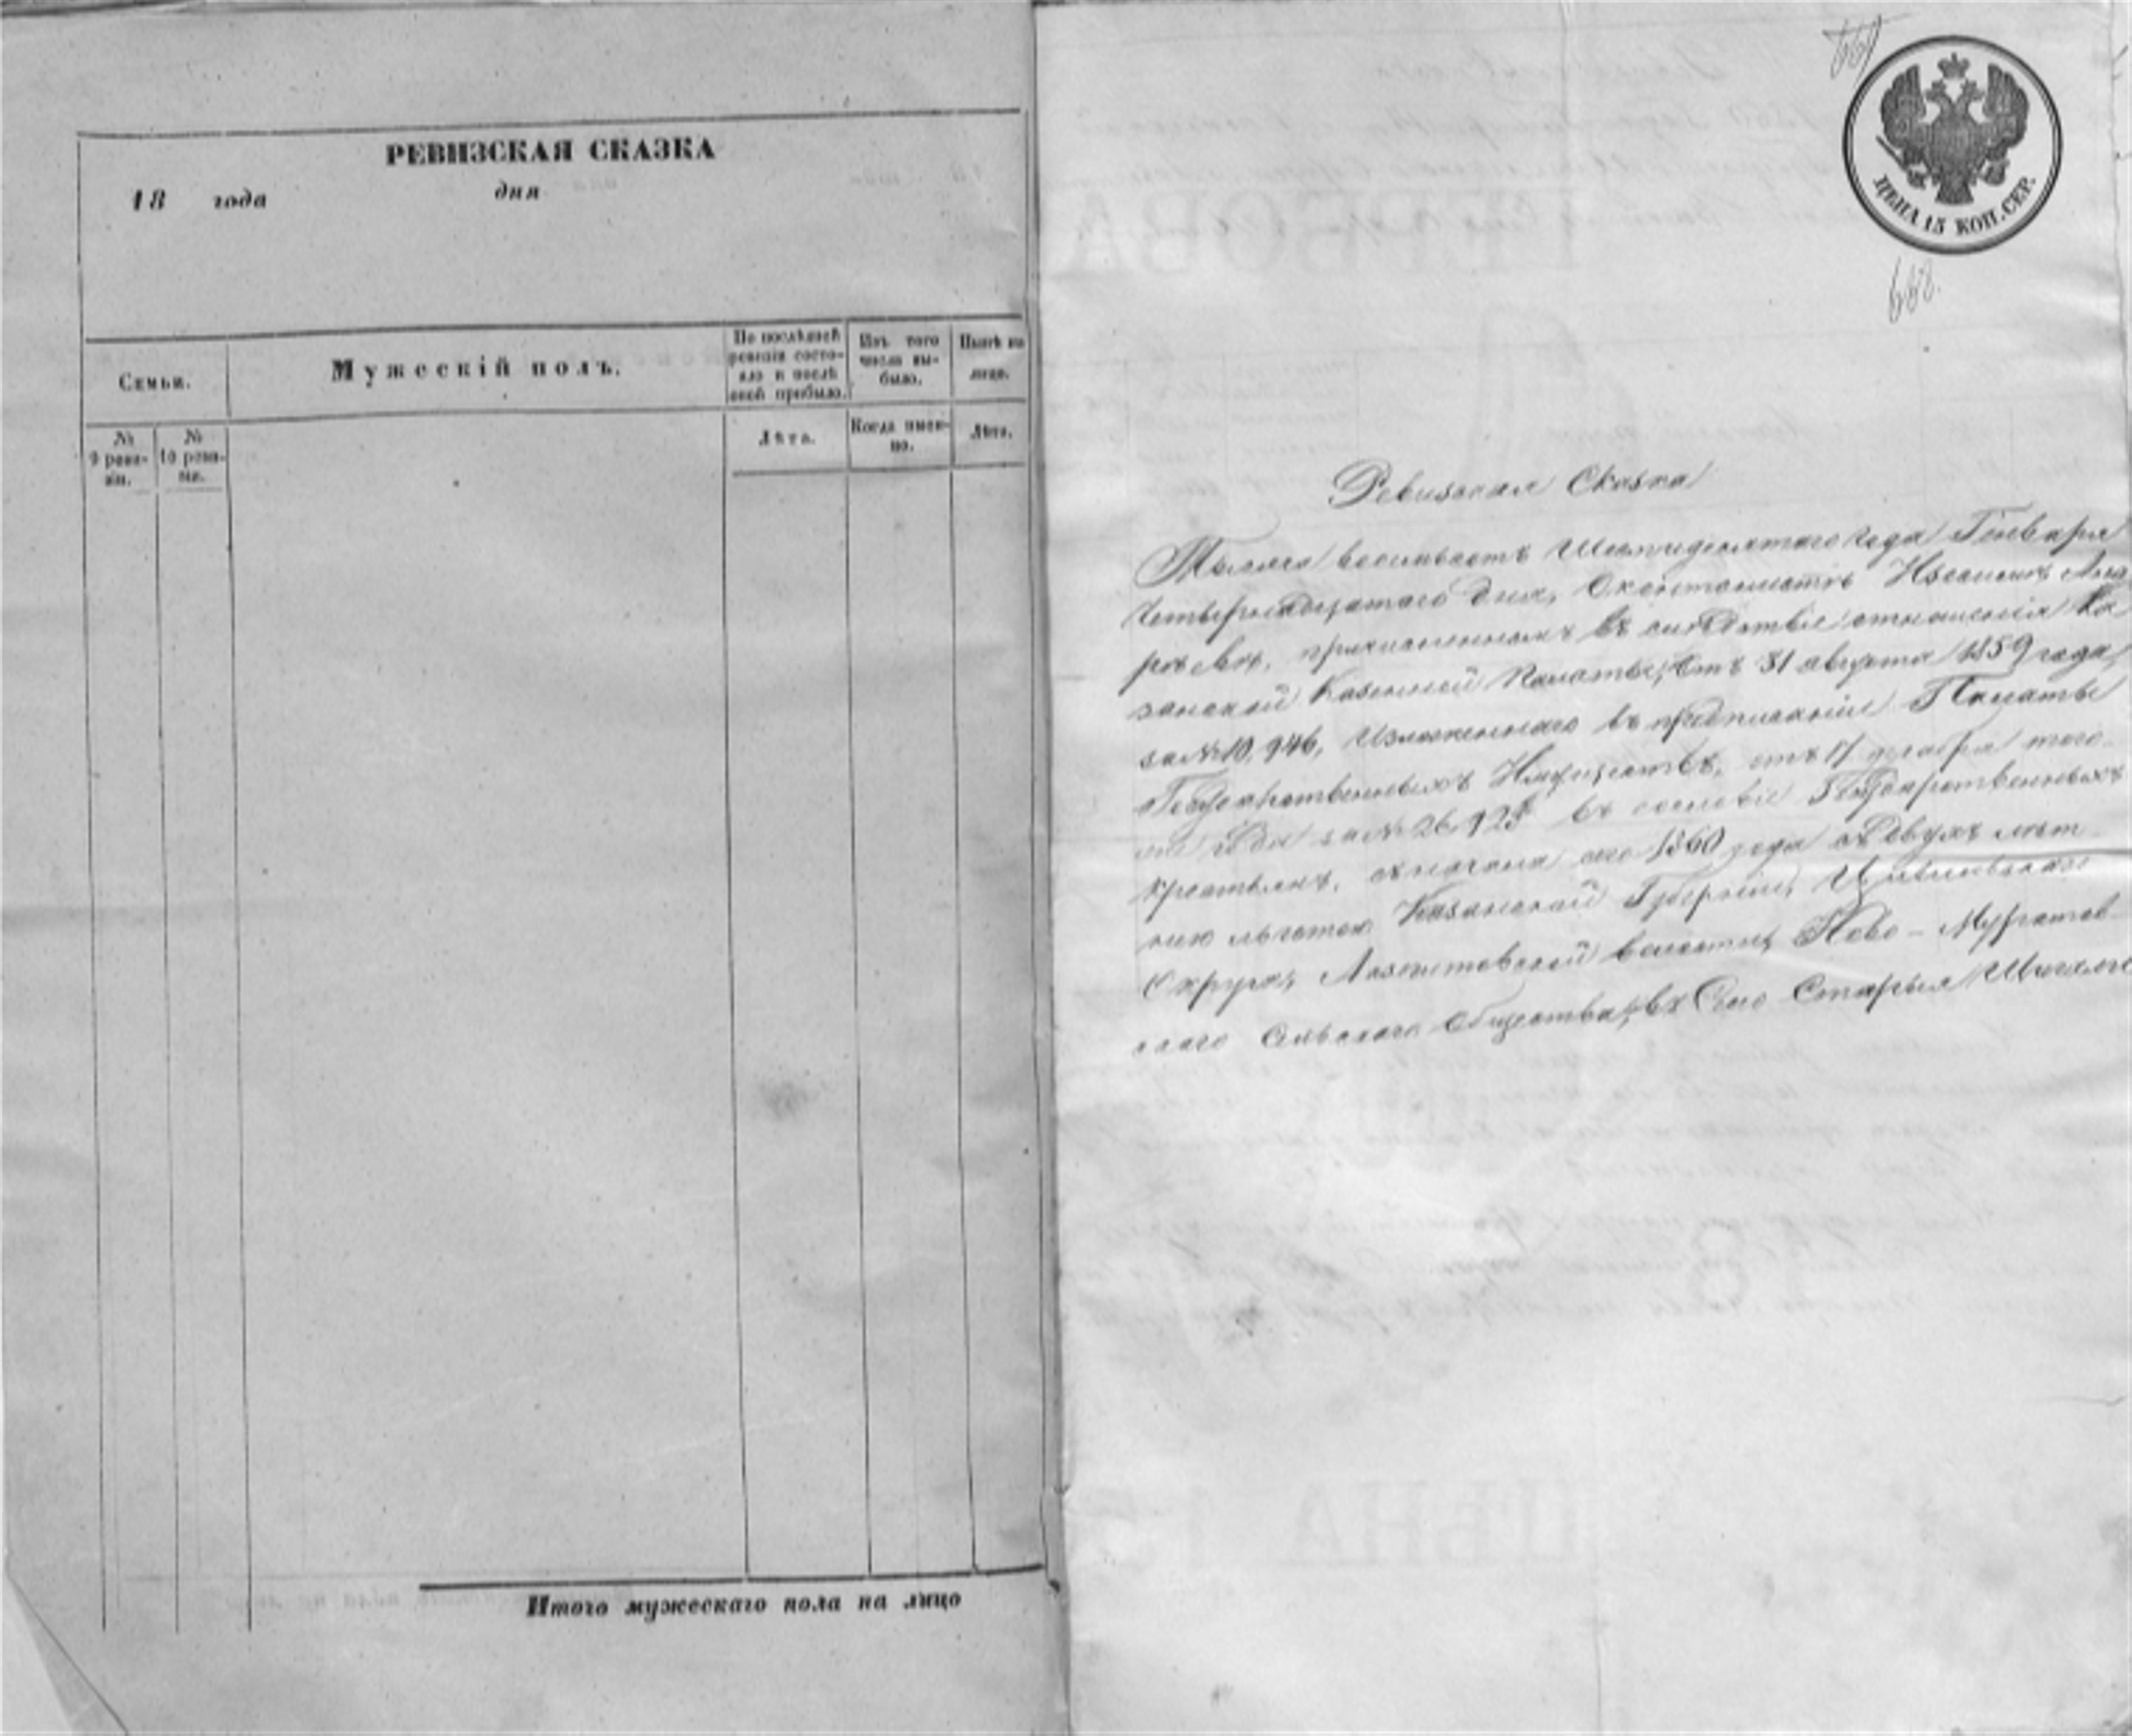 РЕВИЗСКАЯ СКАЗКА
18 года дня
Семьи.
Мужескій полъ.
По послѣдней ревизіи состояло и послѣ оной прибыло.
Изъ того числа выбыло.
Нынѣ на лицо.
№ 9 ревизіи.
№ 10 ревизіи.
Лѣта.
Когда именно.
Лѣта.
Итого мужескаго пола на лицо
668.
ЦѢНА 15 КОП. СЕР.
Ревизская Сказка
Тысяча восемьсотъ Шестидесятаго года Генваря
Четырнадцатаго дня,
въ слѣдствіе отношенія Ка
занской Казенной Палаты, отъ 31 августа 1859 года
за № 10,946, Изложеннаго въ предписаніи Палаты
Государственныхъ Имуществъ, отъ 17 декабря того
за № 26,925 въ сословіе Государственныхъ
крестьянъ, съ начала сего 1860 года съ двухъ лѣт
нею льготою Казанской Губерніи, Цивильскаго
Округа, волости, Ново-Муратов
скаго Сельскаго общества, въ Село Старыя